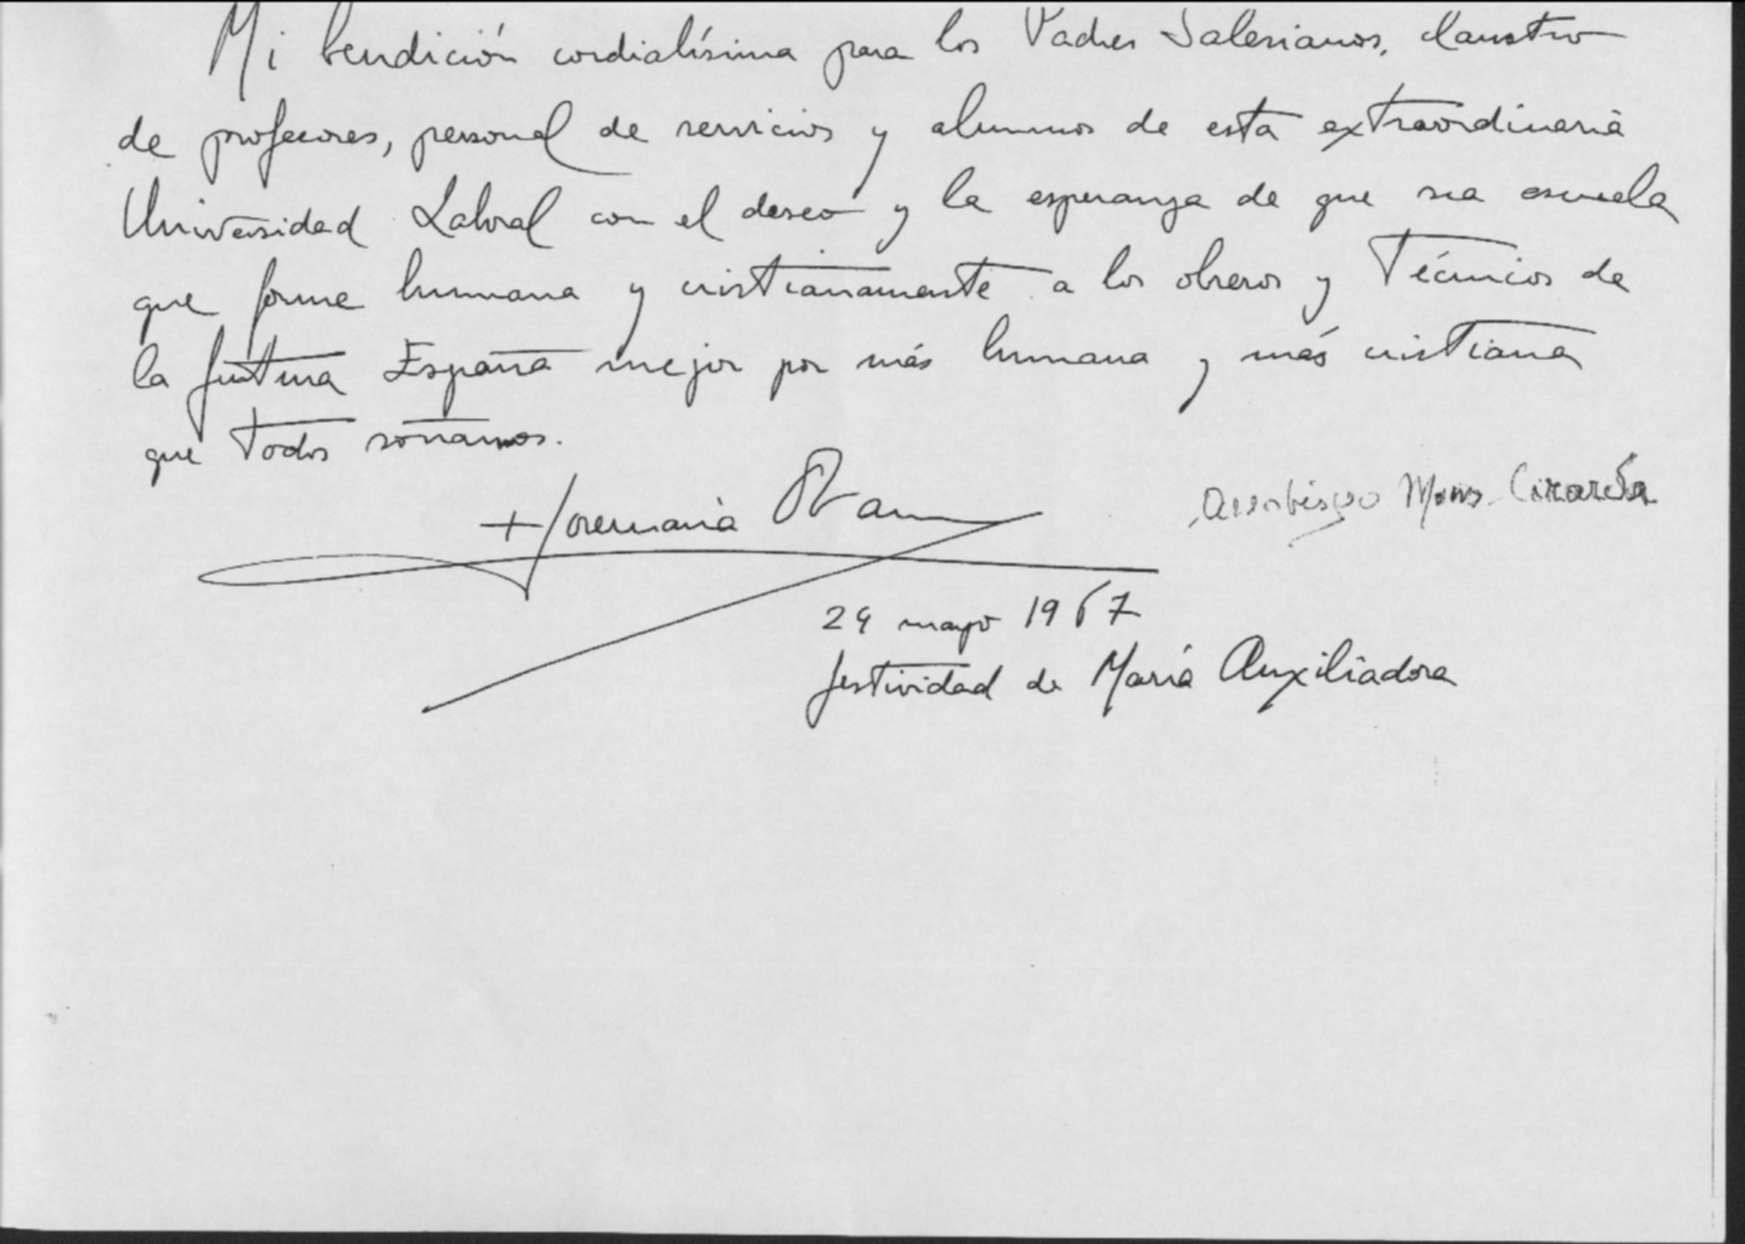 Mi bendición cordialísima para los Padres Salesianos, claustro
de profesores, personal de servicios y alumnos de esta extraordinaria
Universidad Laboral con el deseo y la esperanza de que sea escuela
que forme humana y cristianamente a los obreros y Técnicos de
la futura España mejor por más humana y más cristiana
que todos soñamos.
+ Josemaría
Arzobispo Mons. Cirarda
24 mayo 1967
festividad de María Auxiliadora